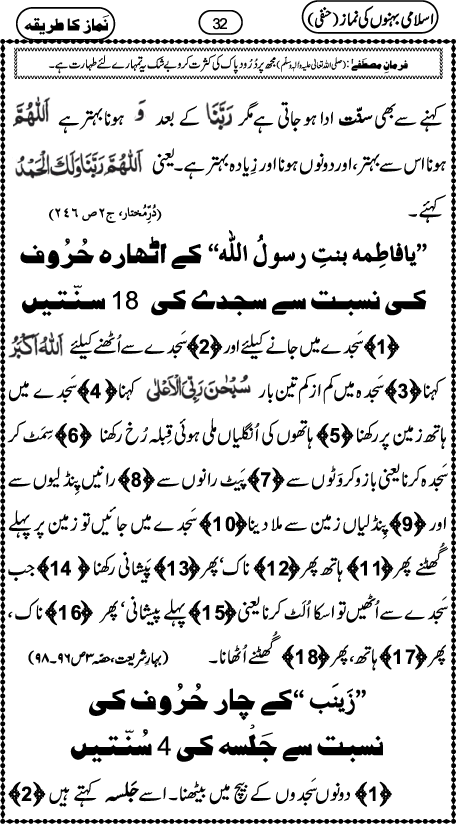 اسلامی بہنوں کی نماز (حنفی)
32
نَماز کا طریقہ
فرمانِ مصطفےٰ: (صلی اللہ تعالیٰ علیہ واٰلہٖ وسلّم) مجھ پر دُرُود پاک کی کثرت کرو بے شک یہ تمہارے لئے طہارت ہے۔
کہنے سے بھی سنّت ادا ہو جاتی ہے مگر رَبَّنَا کے بعد وَ ہونا بہتر ہے اَللّٰھُمَّ
ہونا اس سے بہتر، اور دونوں ہونا اور زِیادہ بہتر ہے۔ یعنی اَللّٰھُمَّ رَبَّنَا وَلَكَ الْحَمْدُ
کہئے۔ (دُرِّمُختار، ج۲ ص ۲۴۶)
”یا فاطِمہ بنتِ رسولُ اللہ“ کے اٹھارہ حُرُوف
کی نسبت سے سجدے کی 18 سنّتیں
﴿1﴾ سَجدے میں جانے کیلئے اور ﴿2﴾ سَجدے سے اُٹھنے کیلئے اَللّٰهُ اَكْبَرُ
کہنا ﴿3﴾ سَجدہ میں کم از کم تین بار سُبْحٰنَ رَبِّیَ الْاَعْلٰی کہنا ﴿4﴾ سَجدے میں
ہاتھ زمین پر رکھنا ﴿5﴾ ہاتھوں کی اُنگلیاں ملی ہوئی قبلہ رُخ رکھنا ﴿6﴾ سِمَٹ کر
سَجدہ کرنا یعنی بازو کروَٹوں سے ﴿7﴾ پَیٹ رانوں سے ﴿8﴾ رانیں پِنڈلیوں سے
اور ﴿9﴾ پِنڈلیاں زمین سے ملا دینا ﴿10﴾ سَجدے میں جائیں تو زمین پر پہلے
گُھٹنے پھر ﴿11﴾ ہاتھ پھر ﴿12﴾ ناک‘ پھر ﴿13﴾ پیشانی رکھنا ﴿14﴾ جب
سَجدے سے اُٹھیں تو اسکا اُلَٹ کرنا یعنی ﴿15﴾ پہلے پیشانی‘ پھر ﴿16﴾ ناک،
پھر ﴿17﴾ ہاتھ، پھر ﴿18﴾ گُھٹنے اُٹھانا۔ (بہارِ شریعت، حصّہ ۳ ص ۹۶۔۹۸)
”زَینَب“ کے چار حُرُوف کی
نسبت سے جَلْسہ کی 4 سُنّتیں
﴿1﴾ دونوں سَجدوں کے بیچ میں بیٹھنا۔ اسے جَلسہ کہتے ہیں ﴿2﴾